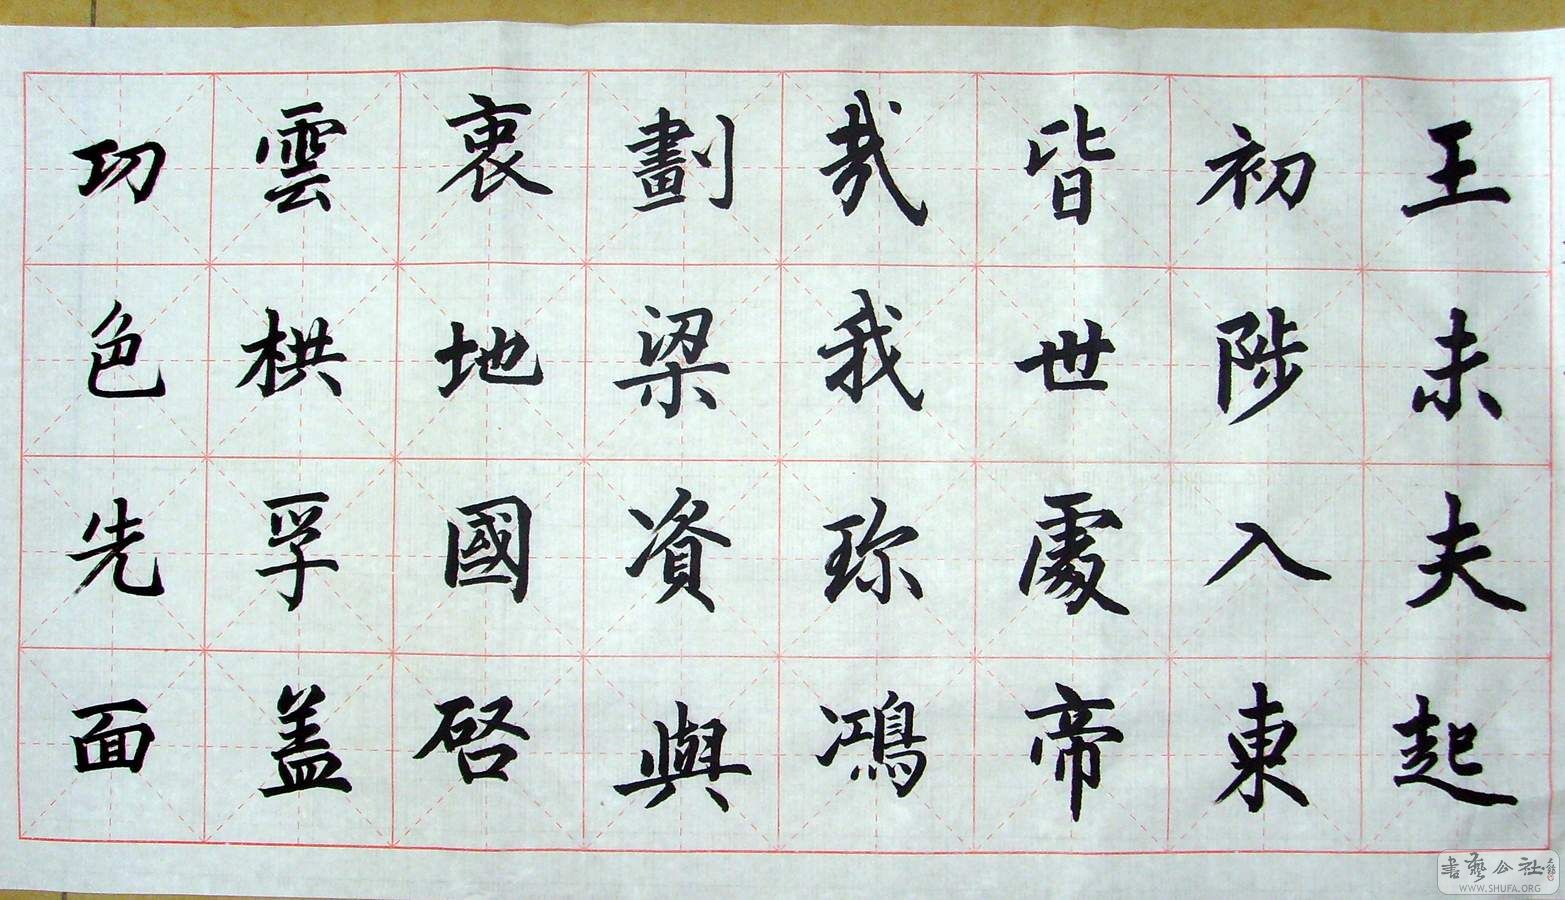 王未夫起
初陟入東
皆世處帝
哉我珎鴻
劃梁資與
衷地國啓
雲栱孚盖
功色先面
書藝公社
WWW.SHUFA.ORG